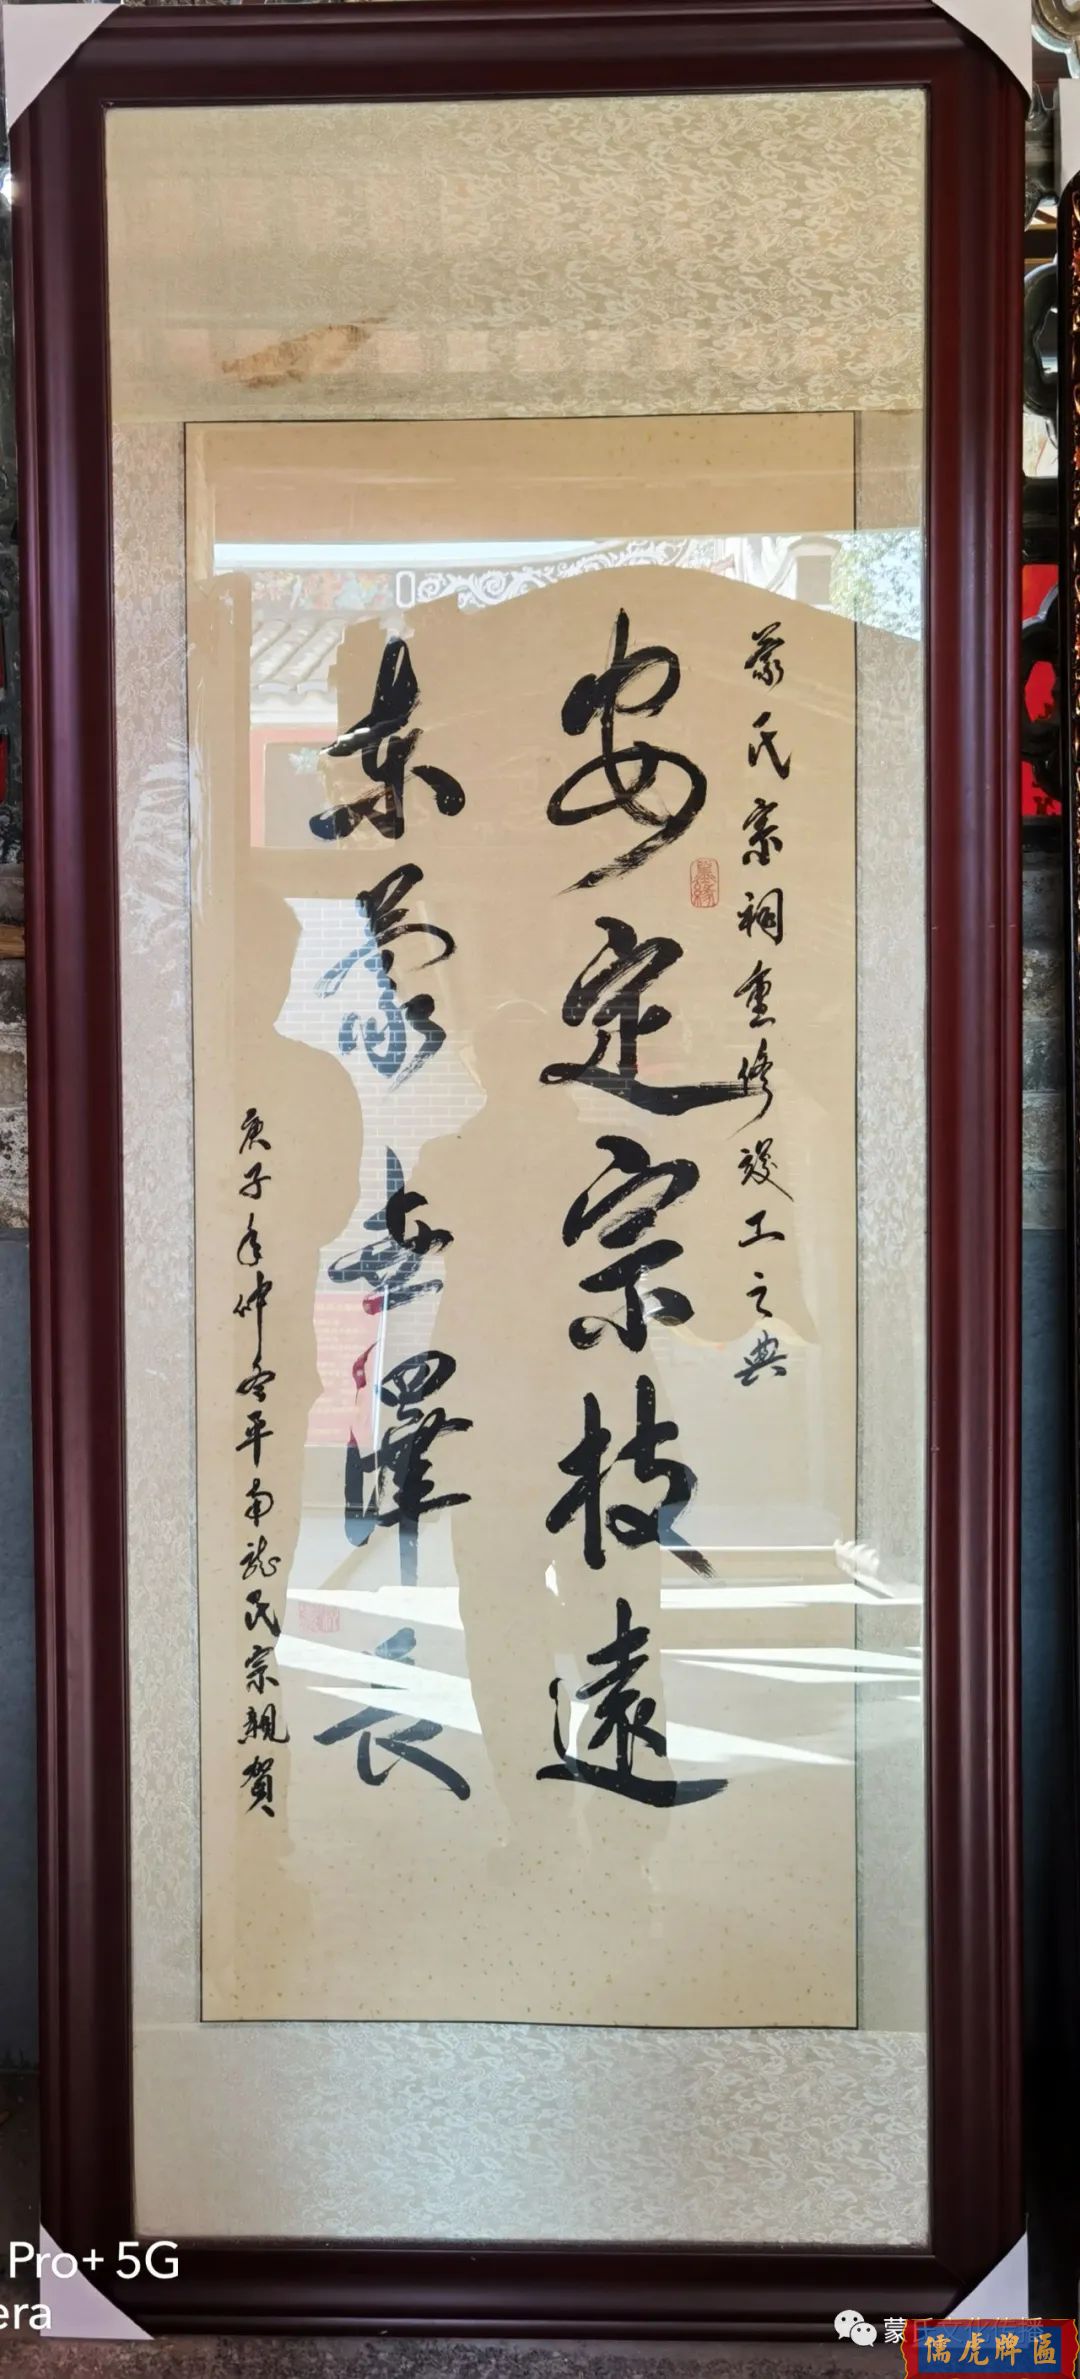 蒙氏宗祠重修竣工之典
安定宗枝遠
東蒙世澤長
庚子年仲冬平南龍氏宗親賀
Pro+ 5G
era
儒虎牌匾